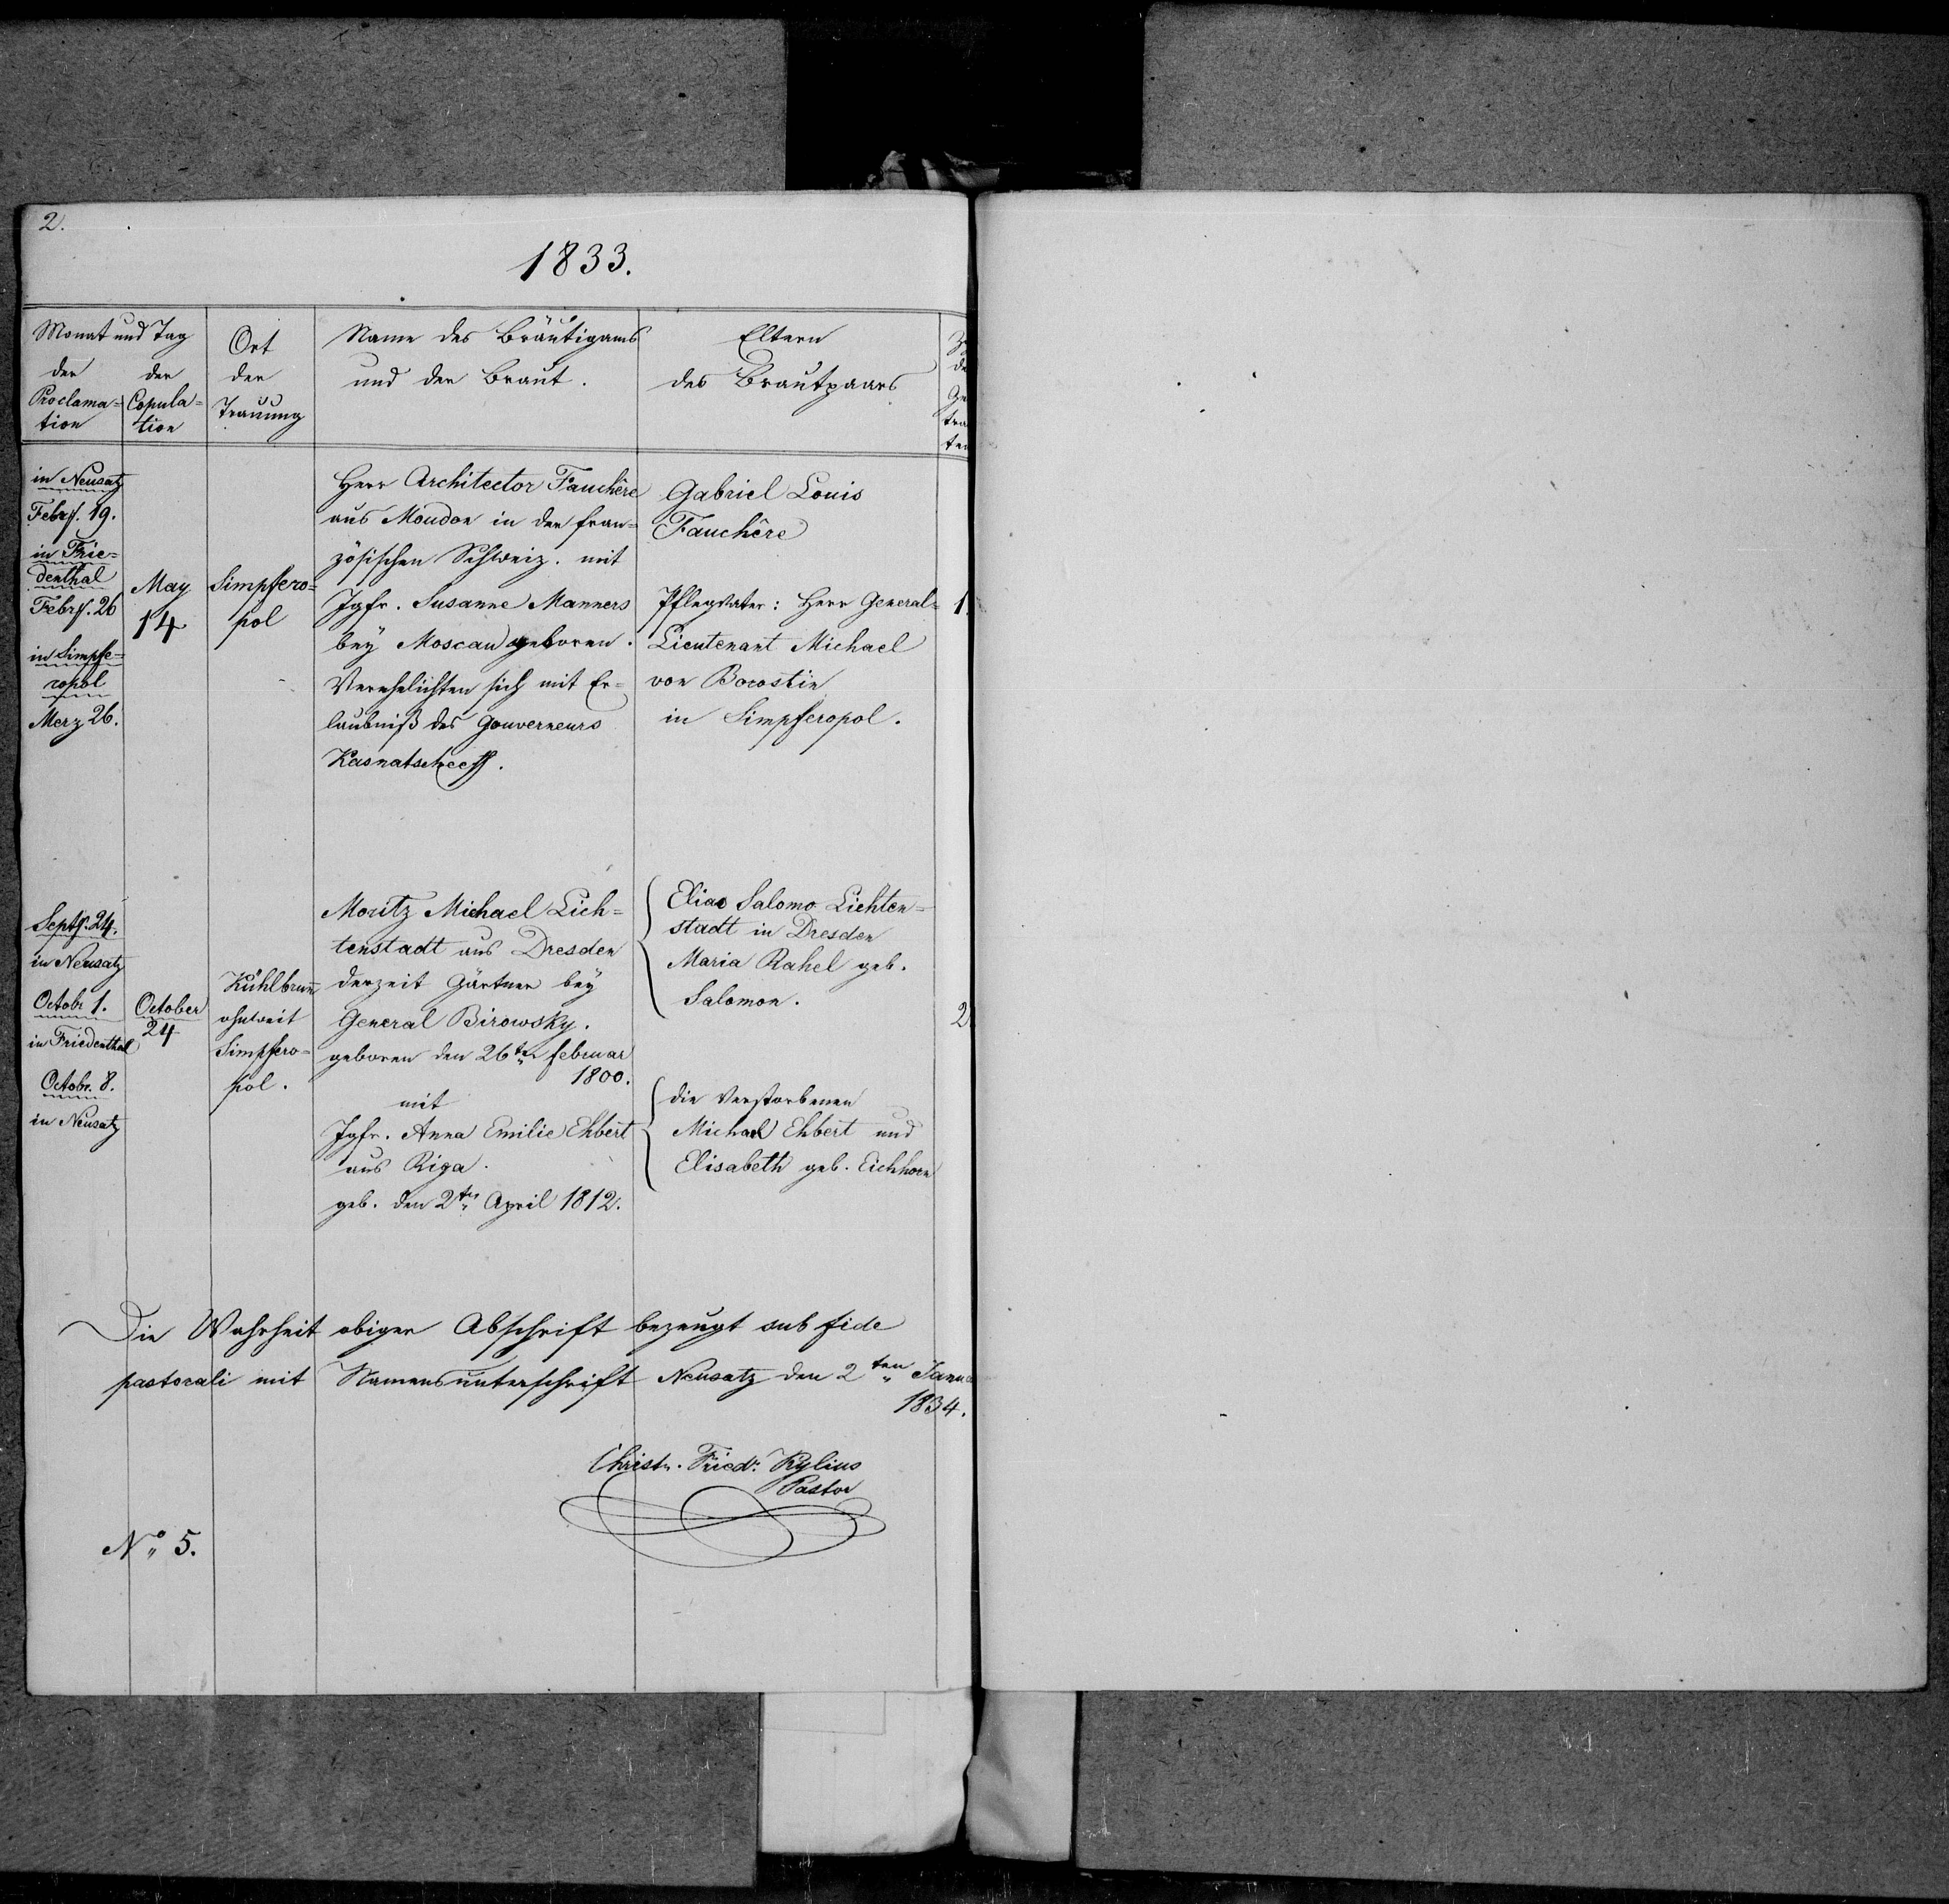 2.
1833.
Monat und Tag
der
Proclama=
tion
der
Copula=
tion
Ort
der
Trauung
Name des Bräutigams
und der Braut.
Eltern
des Brautpaars
in Neusatz
Febr. 19.
in Frie=
denthal
Febr. 26
in Simpfe=
ropol
Merz 26.
May
14
Simpfero=
pol
Herr Architector Fauchêre
aus Moudon in der fran=
zösischen Schweiz. mit
Jgfr. Susanne Manners
bey Moscau geboren.
Verehelichten sich mit Er=
laubniß des Gouverneurs
Kasnatscheeff.
Gabriel Louis
Fauchêre
Pflegvater: Herr General=
Lieutenant Michael
von Borostin
in Simpferopol.
1.
Septr. 24.
in Neusatz
Octobr 1.
in Friedenthal
Octobr. 8.
in Neusatz
October
24
Kühlbrunn
ohnweit
Simpfero=
pol.
Moritz Michael Lich=
tenstadt aus Dresden
derzeit Gärtner bey
General Birowsky.
geboren den 26ten februar
1800.
mit
Jgfr. Anna Emilie Ehbert
aus Riga.
geb. den 2ten April 1812.
Elias Salomo Lichten=
stadt in Dresden
Maria Rahel geb.
Salomon.
die Verstorbenen
Michael Ehbert und
Elisabeth geb. Eichhorn
2
Die Wahrheit obiger Abschrift bezeugt sub fide
pastorali mit Namensunterschrift Neusatz den 2ten Janua
1834.
Christn. Friedr. Kylius
Pastor
No 5.